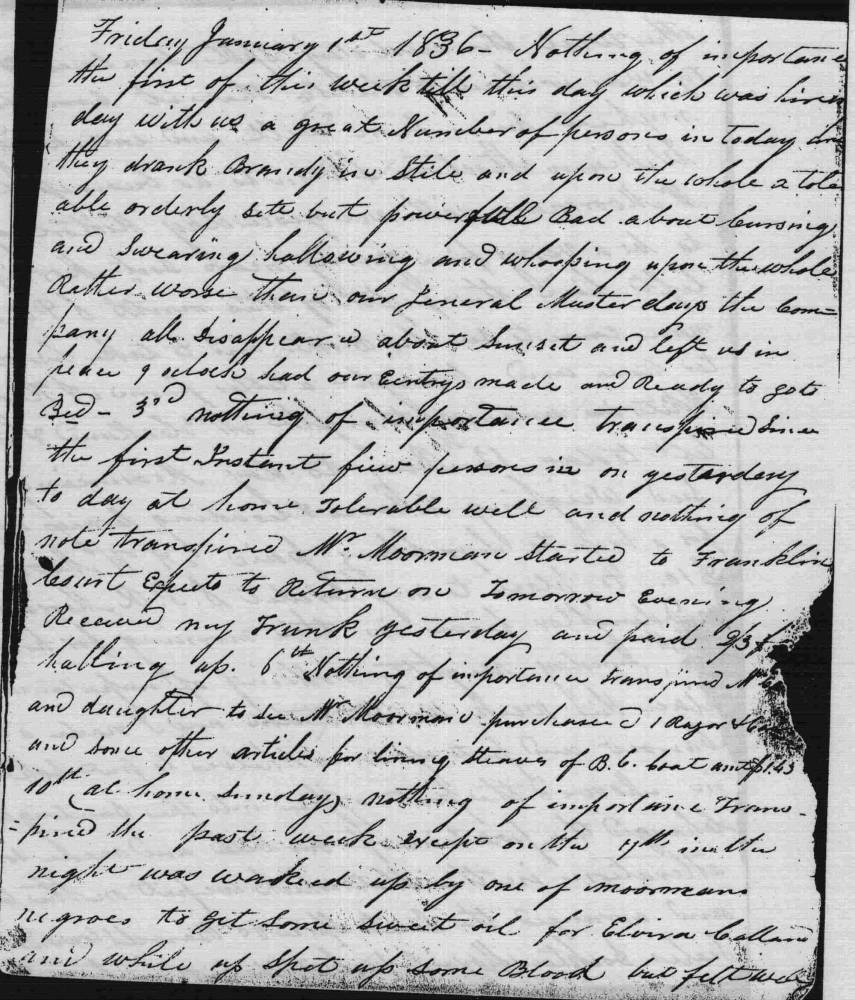 Friday January 1st 1836 - Nothing of importance
the first of this week till this day which was hireing
day with us a great Number of persons in today
they drank Brandy in Stile and upon the whole a tole
able orderly sett but powerfull Bad about Cursing
and Swearing hallowing and whooping upon the whole
Rather worse than our General Muster days the Com=
pany all disappeared about Sunset and left us in
peace 9 oclock had our Eentrys made and Ready to go to
Bed - 3rd nothing of importance transpired Since
the first Instant fiew persons in on yesterday
to day at home Tolerable well and nothing of
note transpired Mr. Moorman Started to Franklin
Court Expects to Return on Tomorrow Evening
Received my Trunk yesterday and paid 2/3 f
halling up. 6th Nothing of importance transpired
and daughter to see Mr Moorman purchased 1 Razor
and some other articles for Lewis Steaver of B. C. Coat amt $1.43
10th (at home Sunday) nothing of importance Trans-
=pired the past week except on the 7th in the
night was waked up by one of Moormans
negroes to get Some Sweet oil for Elvira Calland
and while up Spit up Some Blood but felt well